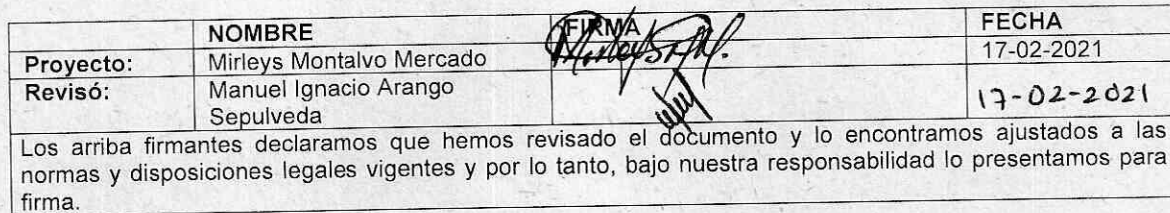 NOMBRE FIRMA FECHA
Proyecto: Mirleys Montalvo Mercado Mirleys M. 17-02-2021
Revisó: Manuel Ignacio Arango
Sepulveda 17-02-2021
Los arriba firmantes declaramos que hemos revisado el documento y lo encontramos ajustados a las
normas y disposiciones legales vigentes y por lo tanto, bajo nuestra responsabilidad lo presentamos para
firma.